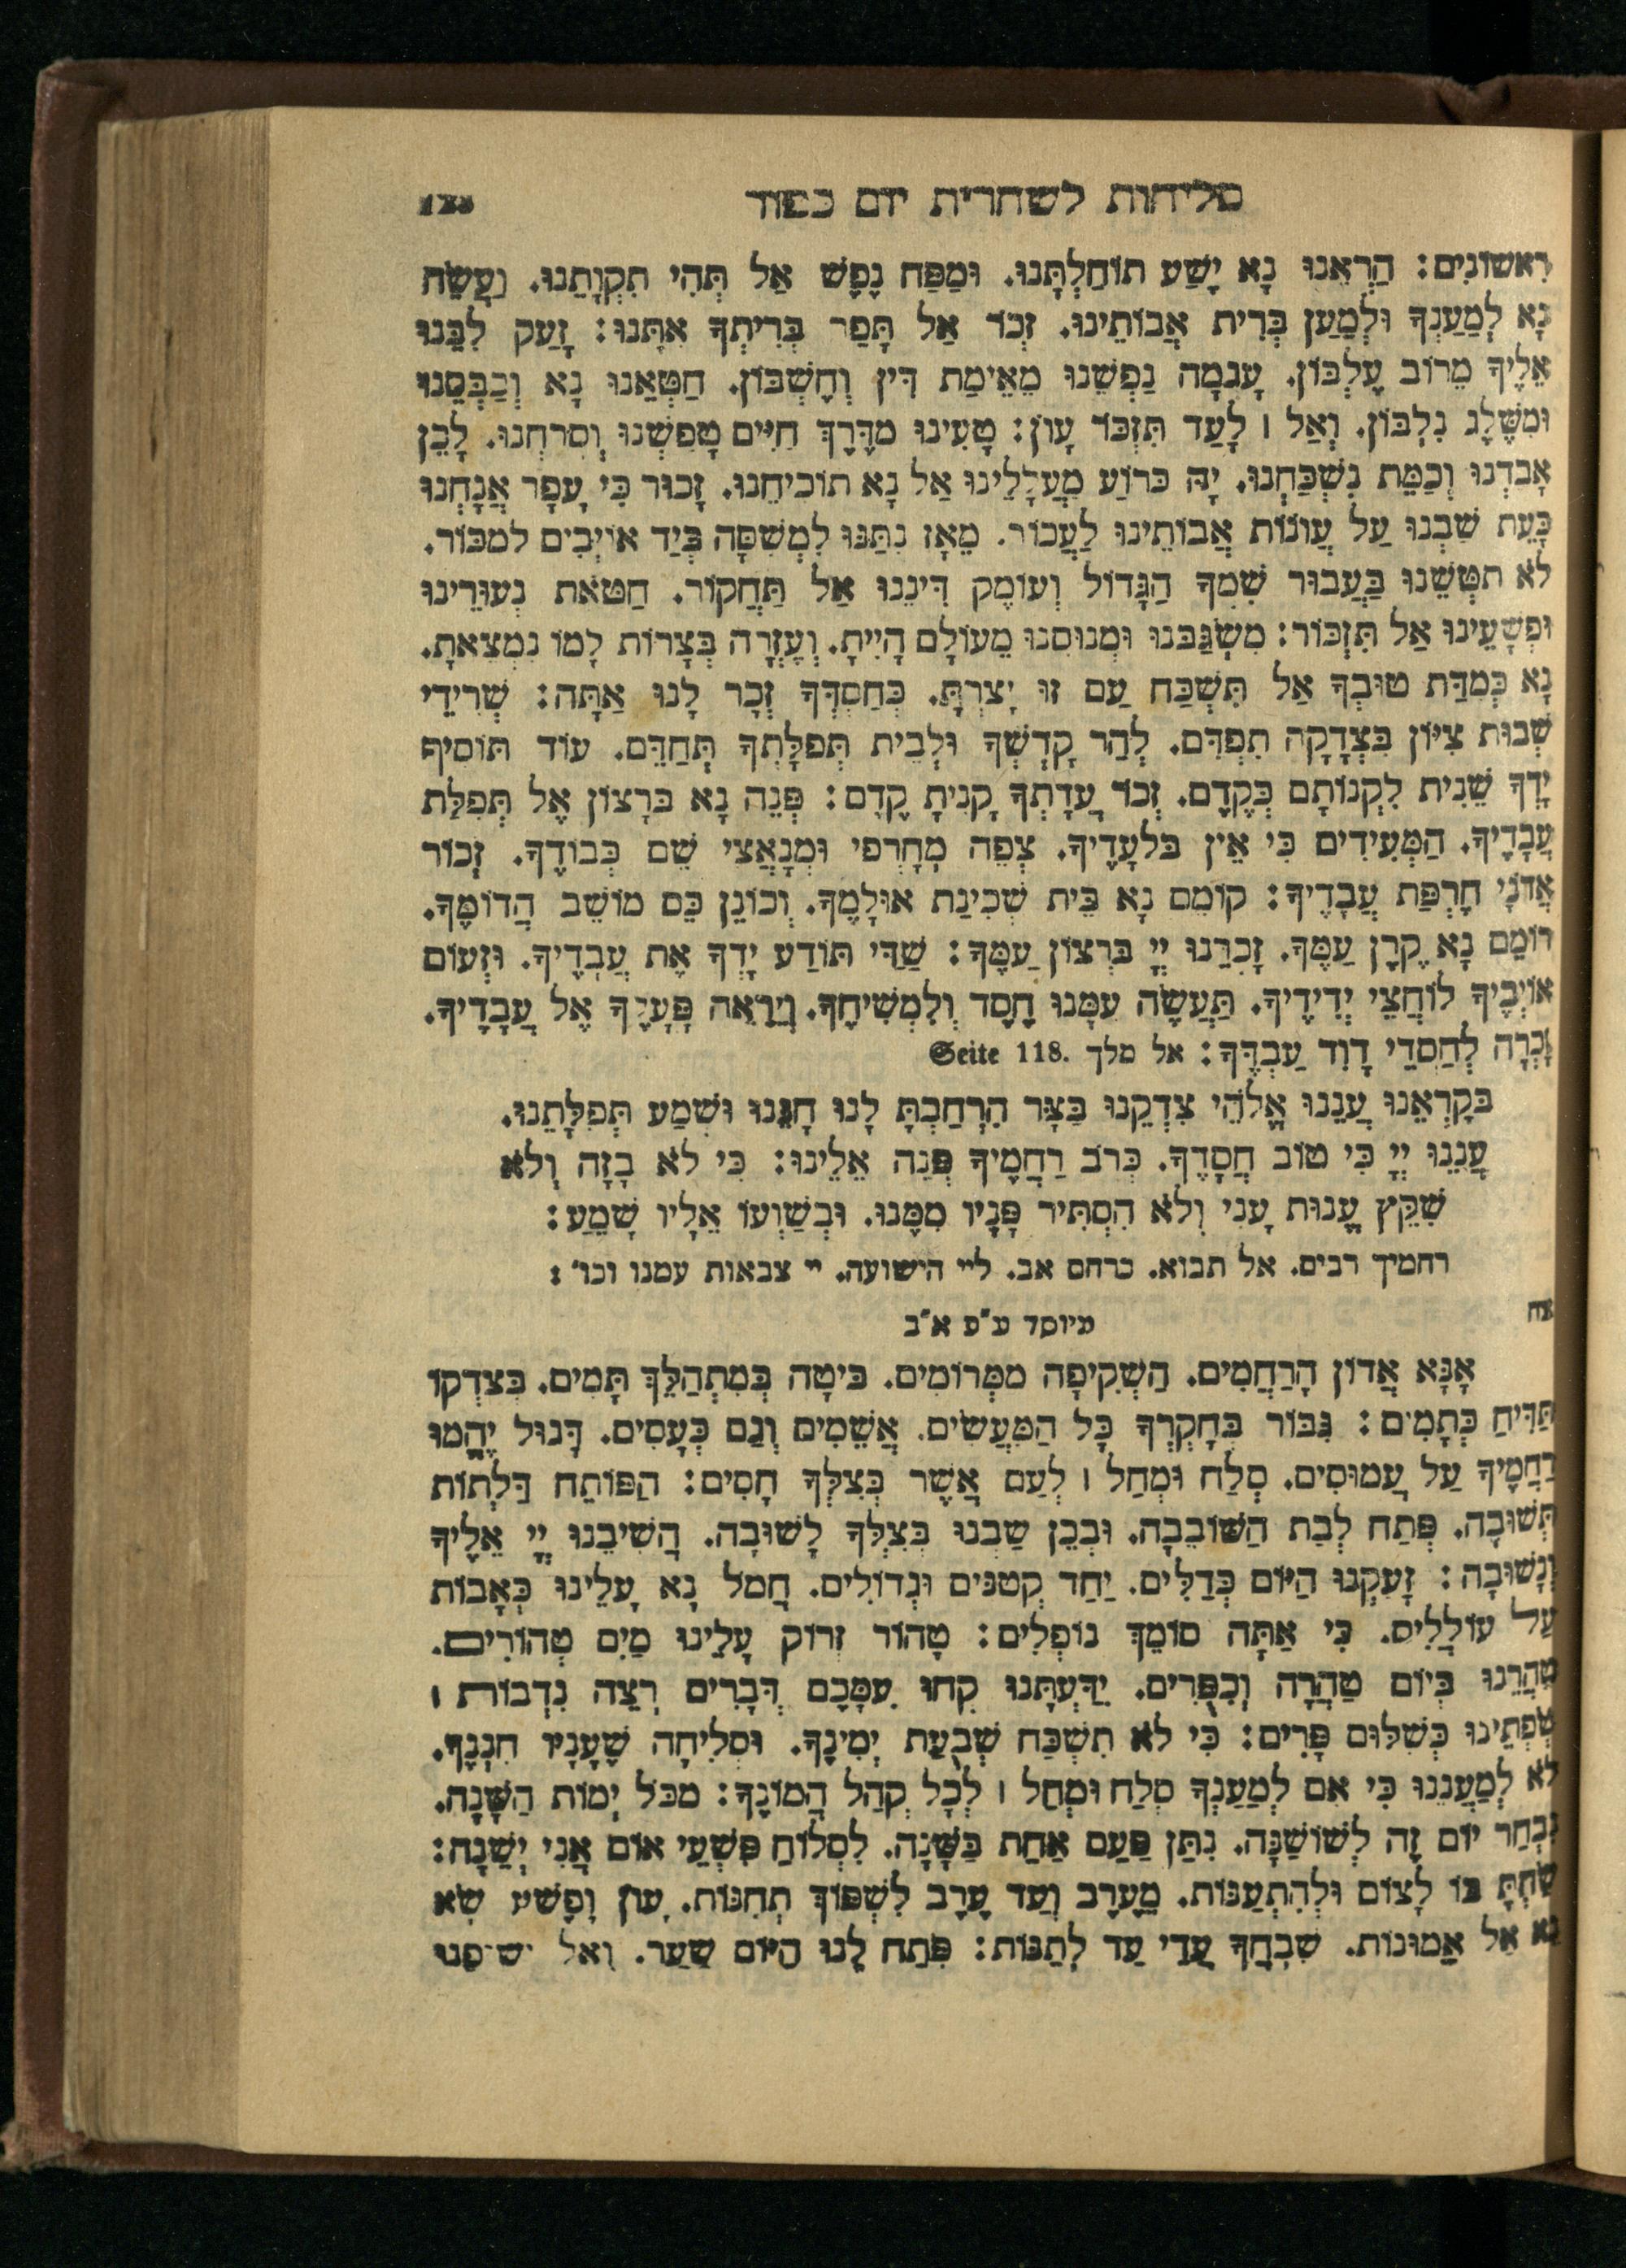 סליחות לשחרית יום כפור
רִאשׁוֹנִים: הַרְאֵנוּ נָא יֶשַׁע תּוֹחַלְתֵּנוּ. וּמַפַּח נֶפֶשׁ אַל תְּהִי תִקְוָתֵנוּ. וַעֲשֵׂה
נָא לְמַעַנְךָ וּלְמַעַן בְּרִית אֲבוֹתֵינוּ. זְכֹר אַל תָּפֵר בְּרִיתְךָ אִתָּנוּ: זָעַק לִבֵּנוּ
אֵלֶיךָ מֵרוֹב עֶלְבּוֹן. עָגְמָה נַפְשֵׁנוּ מֵאֵימַת דִּין וְחֶשְׁבּוֹן. חַטְּאֵנוּ נָא וְכַבְּסֵנוּ
וּמִשֶּׁלֶג נִלְבּוֹן. וְאַל ׀ לָעַד תִּזְכֹּר עָוֹן: טָעִינוּ מִדֶּרֶךְ חַיִּים טָפַשְׁנוּ וְסָרַחְנוּ. לָכֵן
אָבַדְנוּ וְכַמֵּת נִשְׁכַּחְנוּ. יָהּ כְּרוֹעַ מַעֲלָלֵינוּ אַל נָא תוֹכִיחֵנוּ. זָכוּר כִּי עָפָר אֲנָחְנוּ
כָּעֵת שַׁבְנוּ עַל עֲוֹנוֹת אֲבוֹתֵינוּ לַעֲבוֹר. מֵאָז נִתַּנּוּ לִמְשִׁסָּה בְּיַד אוֹיְבִים לִמְכּוֹר.
לֹא תִטְּשֵׁנוּ בַּעֲבוּר שִׁמְךָ הַגָּדוֹל וְעוֹמֶק דִּינֵנוּ אַל תַּחֲקוֹר. חַטֹּאת נְעוּרֵינוּ
וּפְשָׁעֵינוּ אַל תִּזְכּוֹר: מִשְׂגַּבֵּנוּ וּמְנוּסֵנוּ מֵעוֹלָם הָיִיתָ. וְעֶזְרָה בְּצָרוֹת לָמוֹ נִמְצֵאתָ.
נָא כְּמִדַּת טוּבְךָ אַל תִּשְׁכַּח עַם זוּ יָצַרְתָּ. כְּחַסְדְּךָ זְכָר לָנוּ אַתָּה: שְׂרִידֵי
שְׁבוּת צִיּוֹן בִּצְדָקָה תִפְדֵּם. לְהַר קָדְשְׁךָ וּלְבֵית תְּפִלָּתְךָ תְּחַדֵּם. עוֹד תּוֹסִיף
יָדְךָ שֵׁנִית לִקְנוֹתָם כְּקֶדֶם. זְכֹר עֲדָתְךָ קָנִיתָ קֶדֶם: פְּנֵה נָא בְּרָצוֹן אֶל תְּפִלַּת
עֲבָדֶיךָ. הַמְּעִידִים כִּי אֵין בִּלְעָדֶיךָ. צְפֵה מְחָרְפֵי וּמְנָאֲצֵי שֵׁם כְּבוֹדֶךָ. זְכוֹר
אֲדֹנָי חֶרְפַּת עֲבָדֶיךָ: קוֹמֵם נָא בֵּית שְׁכִינַת אוּלָמֶךָ. וְכוֹנֵן כֵּס מוֹשַׁב הֲדוֹמֶךָ.
רוֹמֵם נָא קֶרֶן עַמֶּךָ. זָכְרֵנוּ יְיָ בִּרְצוֹן עַמֶּךָ: שַׁדַּי תּוֹדַע יָדְךָ אֶת עֲבָדֶיךָ. וּזְעוֹם
אוֹיְבֶיךָ לוֹחֲצֵי יְדִידֶיךָ. תַּעֲשֶׂה עִמָּנוּ חֶסֶד וְלִמְשִׁיחֶךָ. וְיֵרָאֶה פָּעֳלֶךָ אֶל עֲבָדֶיךָ.
זָכְרָה לְחַסְדֵי דָוִד עַבְדֶּךָ: אל מלך Seite 118.
בְּקָרְאֵנוּ עֲנֵנוּ אֱלֹהֵי צִדְקֵנוּ בַּצָּר הִרְחַבְתָּ לָנוּ חָנֵּנוּ וּשְׁמַע תְּפִלָּתֵנוּ.
עֲנֵנוּ יְיָ כִּי טוֹב חַסְדֶּךָ. כְּרֹב רַחֲמֶיךָ פְּנֵה אֵלֵינוּ: כִּי לֹא בָזָה וְלֹא
שִׁקַּץ עֱנוּת עָנִי וְלֹא הִסְתִּיר פָּנָיו מִמֶּנּוּ. וּבְשַׁוְּעוֹ אֵלָיו שָׁמֵעַ:
רחמיך רבים. אל תבוא. כרחם אב. ליי הישועה. יי צבאות עמנו וכו׳:
צח
מיוסד ע״פ א״ב
אָנָּא אֲדוֹן הָרַחֲמִים. הַשְׁקִיפָה מִמְּרוֹמִים. בִּיטָה כְּמִתְהַלֵּךְ תָּמִים. בְּצִדְקוֹ
תַּדִּיחַ כְּתָמִים: גִּבּוֹר בְּחָקְרְךָ כָּל הַמַּעֲשִׂים. אֲשֵׁמִים וְגַם כְּעָסִים. דָּגוּל יֶהֱמוּ
רַחֲמֶיךָ עַל עֲמוּסִים. סְלַח וּמְחַל ׀ לְעַם אֲשֶׁר בְּצִלְּךָ חָסִים: הַפּוֹתֵחַ דַּלְתוֹת
תְּשׁוּבָה. פְּתַח לְבַת הַשּׁוֹבֵבָה. וּבְכֵן שַׁבְנוּ בְּצִלְּךָ לָשׁוּבָה. הֲשִׁיבֵנוּ יְיָ אֵלֶיךָ
וְנָשׁוּבָה: זָעַקְנוּ הַיּוֹם כְּדַלִּים. יַחַד קְטַנִּים וּגְדוֹלִים. חֲמֹל נָא עָלֵינוּ כְּאָבוֹת
עַל עוֹלָלִים. כִּי אַתָּה סוֹמֵךְ נוֹפְלִים: טָהוֹר זְרוֹק עָלֵינוּ מַיִם טְהוֹרִים.
טַהֲרֵנוּ בְּיוֹם טַהֲרָה וְכִפֻּרִים. יִדַּעְתָּנוּ קְחוּ עִמָּכֶם דְּבָרִים רְצֵה נִדְבוֹת ׀
שְׂפָתֵינוּ כְּשִׁלּוּם פָּרִים: כִּי לֹא תִשְׁכַּח שְׁבֻעַת יְמִינֶךָ. וּסְלִיחָה שֶׁעָנָיו חִנְנֶךָ.
לֹא לְמַעֲנֵנוּ כִּי אִם לְמַעַנְךָ סְלַח וּמְחַל ׀ לְכָל קְהַל הֲמוֹנֶךָ: מִכֹּל יְמוֹת הַשָּׁנָה.
נִבְחַר יוֹם זֶה לְשׁוֹשַׁנָּה. נִתַּן פַּעַם אַחַת בַּשָּׁנָה. לִסְלוֹחַ פִּשְׁעֵי אוֹם אֲנִי יְשֵׁנָה:
שַׂחְתָּ בּוֹ לָצוֹם וּלְהִתְעַנּוֹת. מֵעֶרֶב וְעַד עֶרֶב לִשְׁפּוֹךְ תְּחִנּוֹת. עָוֹן וָפֶשַׁע שָׂא
נָא אֵל אֱמוּנוֹת. שִׁבְחֲךָ עֲדֵי עַד לְתַנּוֹת: פְּתַח לָנוּ הַיּוֹם שַׁעַר. וְאַל